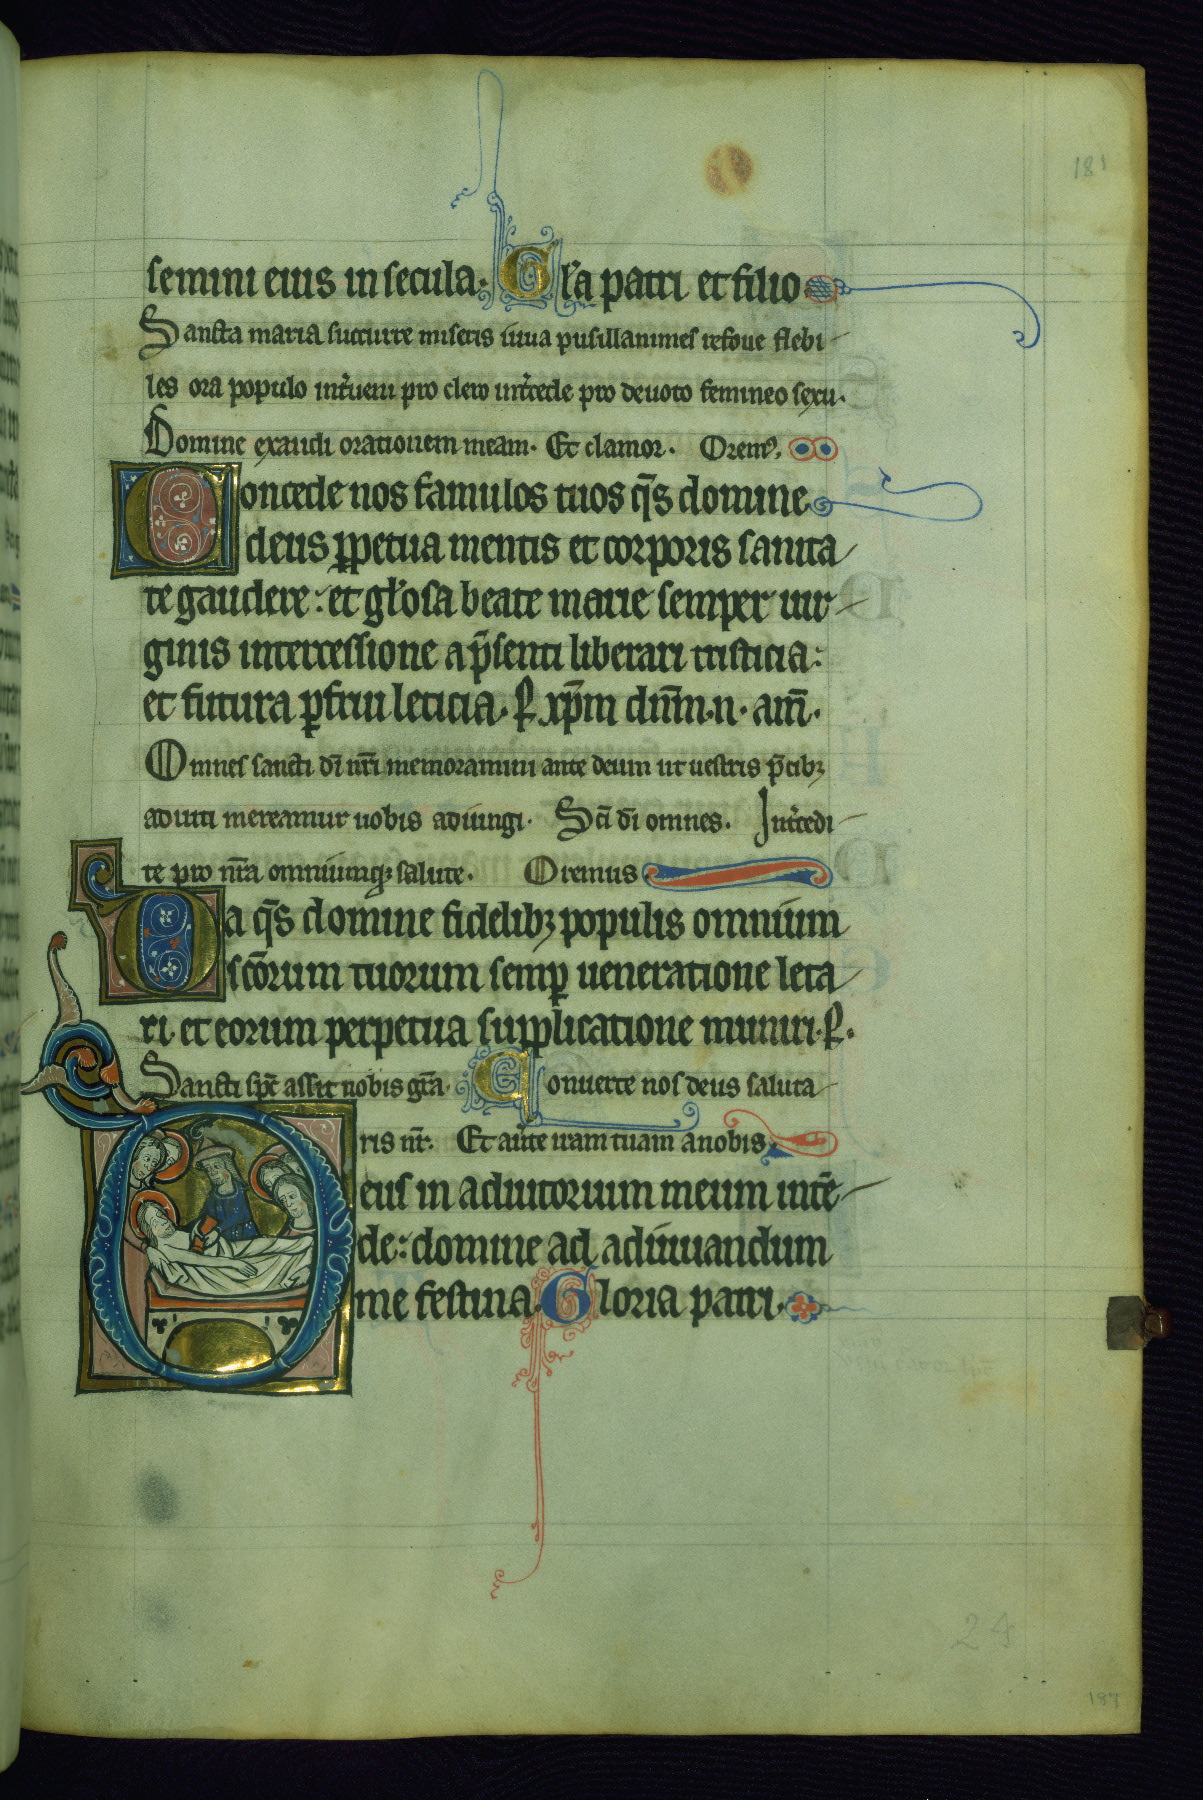 181
semini eius in secula. Gl'a patri et filio
Sancta maria succurre miseris iuua pusillanimes refoue flebi
les ora populo int'ueni pro clero int'cede pro deuoto femineo sexu.
Domine exaudi orationem meam. Et clamor. Orem9.
Concede nos famulos tuos q̄s domine
deus ꝑpetua mentis et corporis sanita
te gaudere: et gl'osa beate marie semper uir
ginis intercessione a p̄senti liberari tristicia:
et futura ꝑfrui leticia. P. xp̄m dn̄m. n. am̄.
Omnes sancti dī nr̄i memoramini ante deum ut uestris p̄cibꝫ
adiuti mereamur uobis adiungi. Sc̄i dī omnes. Int'cedi
te pro nr̄a omniumqꝫ salute. Oremus
Da q̄s domine fidelibꝫ populis omnium
sc̄orum tuorum semꝑ ueneratione leta
ri. et eorum perpetua supplicatione muniri. P.
Sancti sp̄c assit nobis gr̄a. Conuerte nos deus saluta
ris nr̄. Et au'te iram tuam a nobis.
Deus in adiutorium meum intē
de: domine ad adiuuandum
me festina. Gloria patri.
24
187